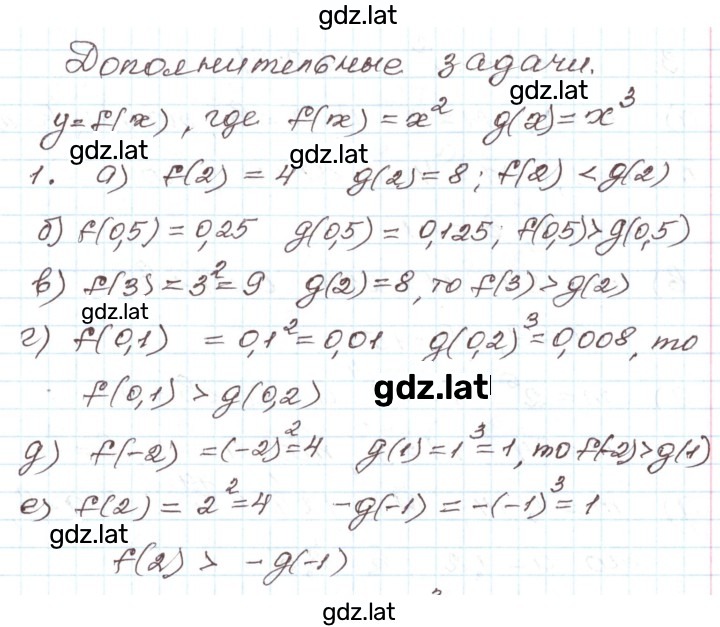 gdz.lat
Дополнительные задачи.
gdz.lat
y=f(x), где f(x) = x² g(x) = x³
gdz.lat gdz.lat
1. а) f(2) = 4 g(2) = 8; f(2) < g(2)
б) f(0,5) = 0,25 g(0,5) = 0,125; f(0,5)>g(0,5)
в) f(3) = 3² = 9 g(2) = 8, то f(3) > g(2)
gdz.lat
г) f(0,1) = 0,1² = 0,01 g(0,2)³ = 0,008, то
f(0,1) > g(0,2) gdz.lat
д) f(-2) = (-2)² = 4 g(1) = 1³ = 1, то f(-2) > g(1)
е) f(2) = 2² = 4 -g(-1) = -(-1)³ = 1
gdz.lat
f(2) > -g(-1)
gdz.lat